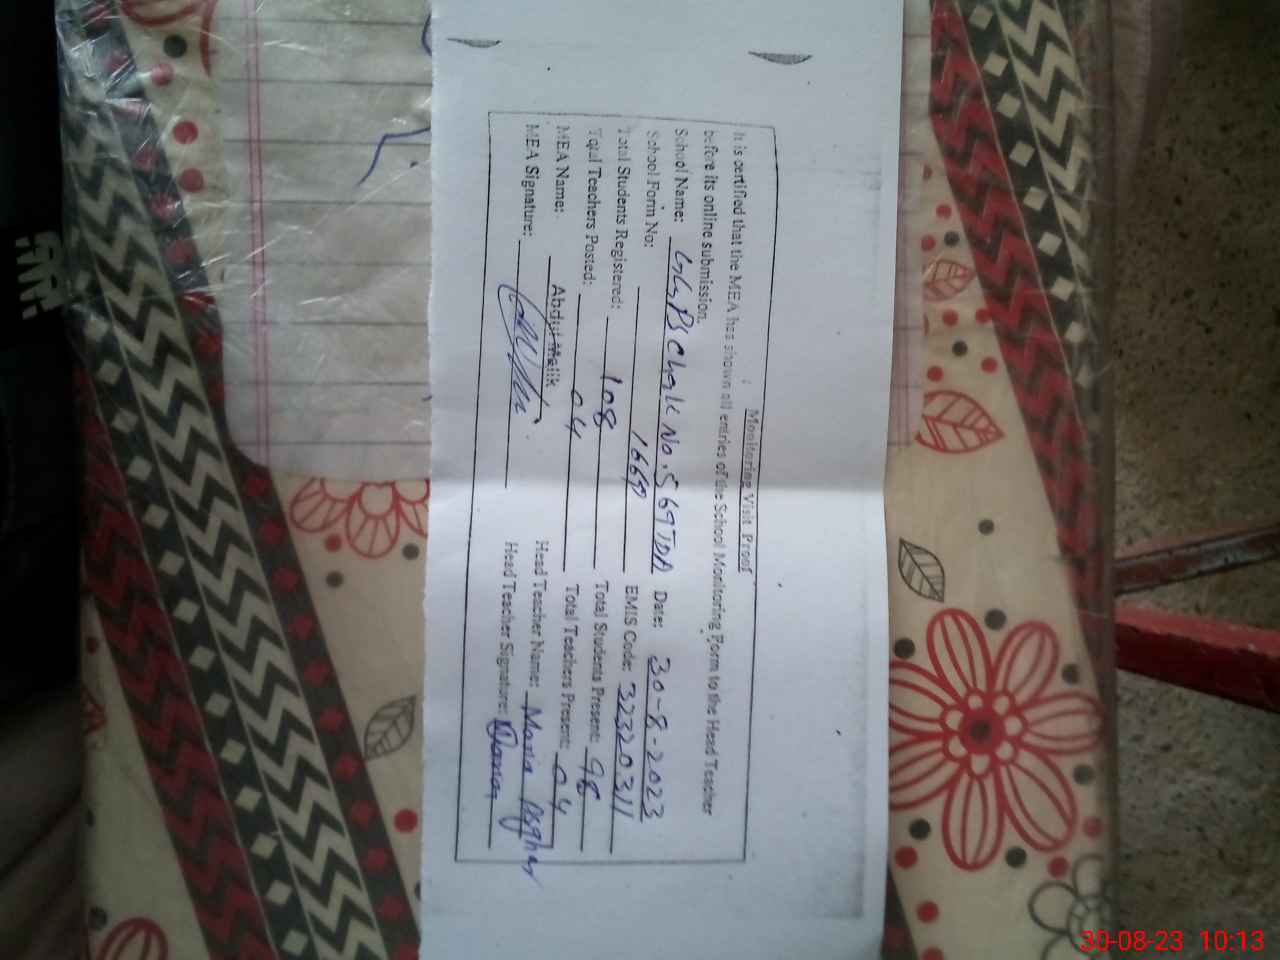 Monitoring Visit Proof
It is certified that the MEA has shown all entries of the School Monitoring Form to the Head Teacher
before its online submission.
School Name: GGPS Chak No. 569 TDA Date: 30-8-2023
School Form No: 1669 EMIS Code: 32320311
Total Students Registered: 108 Total Students Present: 98
Total Teachers Posted: 04 Total Teachers Present: 04
MEA Name: Abdul Malik Head Teacher Name: Maria Asghar
MEA Signature: Head Teacher Signature:
30-08-23 10:13